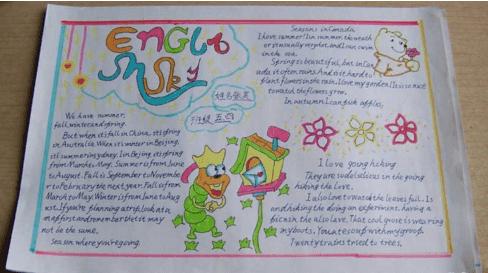 English
Sky
姓名
班级 五
Seasons in Canada
I love summer! In summer, the weath
er is usually very hot, and I can swim
in the sea.
Spring is beautiful, but in Can
ada it often rains. And it is hard to
plant flowers in the rain. I love my garden. It is so nice
to watch the flowers grow.
In autumn, I can pick apples,
We have summer,
fall, winter and spring.
But when it is fall in China, it is spring
in Australia. When it is winter in Beijing,
it is summer in sydney. In Beijing it is spring
from March to May. Summer is from June
to August. Fall is September to Novembe
r to February the next year. Fall is from
March to May. Winter is from June to Aug
ust. If you're planning a trip, look at a
map first and remember that it may
not be the same.
Season where you're going.
I love going hiking
They are so delicious in the going
hiking the love.
I also love to watch the leaves fall. Is
and hiking the doing an experiment. having a
picnic in the also love. That cool grose is wearing
my boots. You cat e soup with my group.
Twenty trains tried to trees.